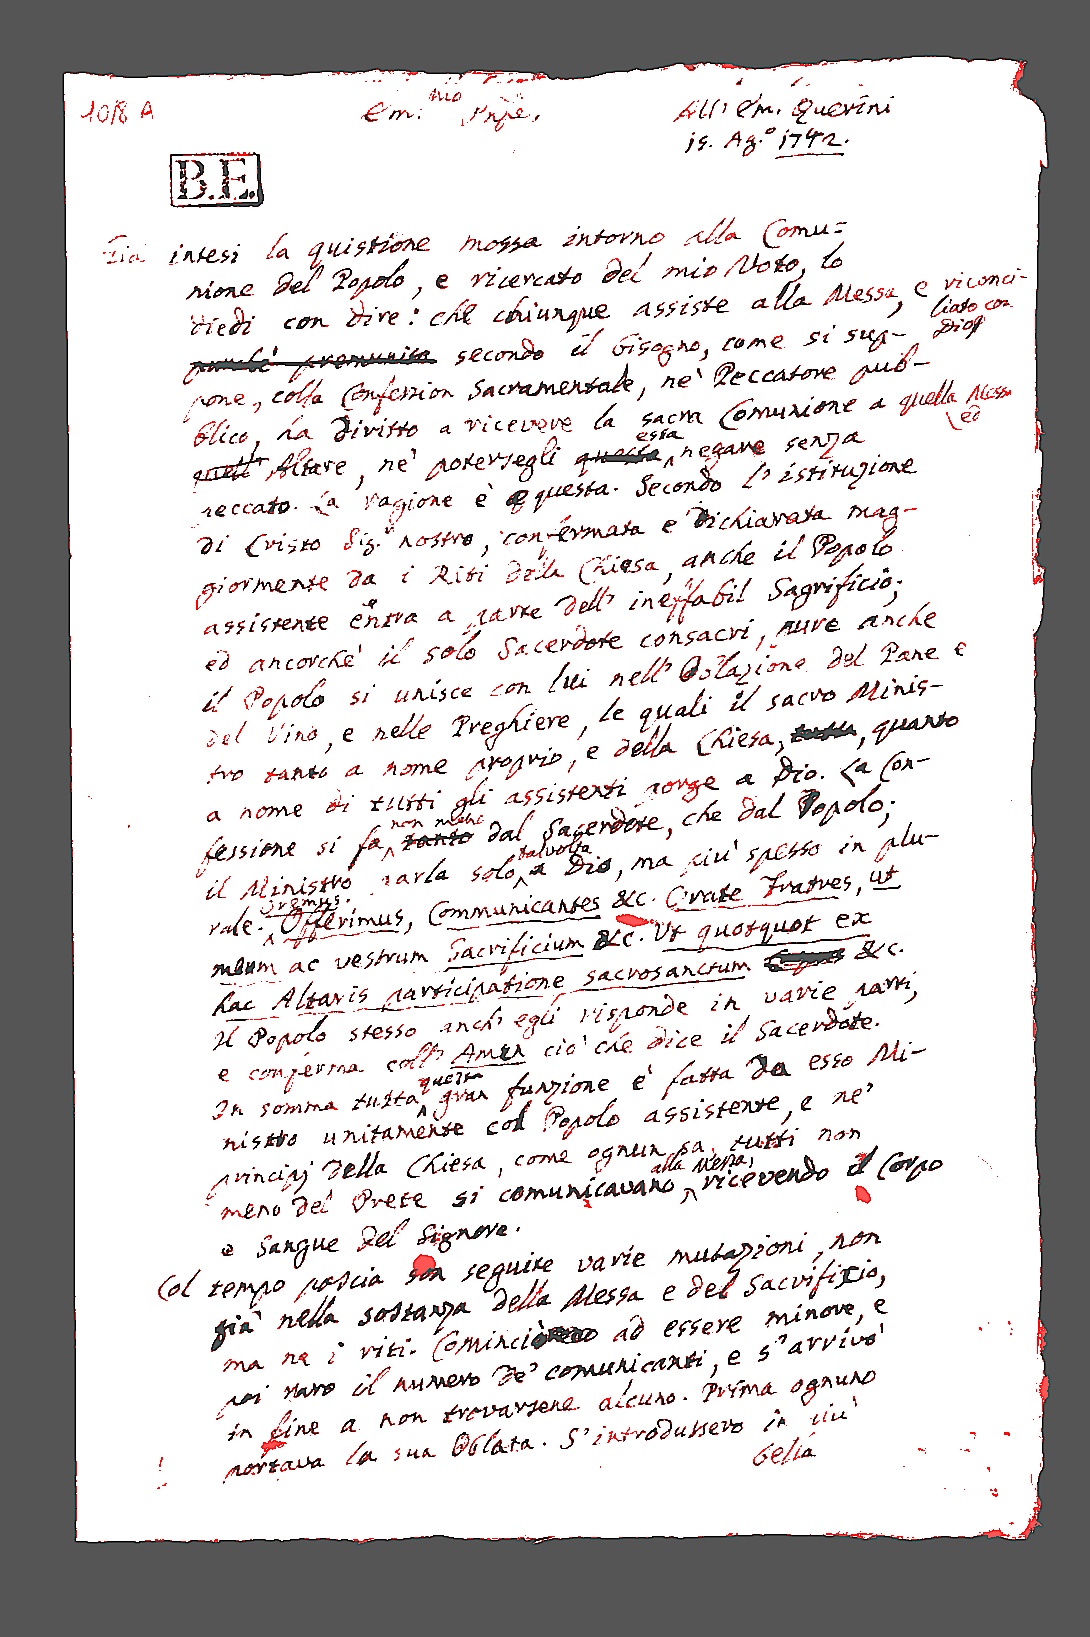 10/8 A
Em.mo Pnpe.
All' Em. Querini
15. Ag.o 1742.
B.E.
Già intesi la quistione mossa intorno alla Comu=
nione del Popolo, e ricercato del mio Voto, lo
diedi con dire: che chiunque assiste alla Messa, e riconci-
liato con
Dio,
purchè premunito secondo il bisogno, come si sup-
pone, colla Confession Sacramentale, nè Peccatore pub-
blico, ha diritto a ricevere la sacra Comunione a quella Messa
ed
quell' Altare, nè potersegli questa essa negare senza
peccato. La ragione è questa. Secondo l'istituzione
di Cristo Sig.r nostro, confermata e dichiarata mag-
giormente da i Riti della Chiesa, anche il Popolo
assistente entra a parte dell' ineffabil Sagrificio;
ed ancorchè il solo Sacerdote consacri, pure anche
il Popolo si unisce con lui nell' Oblazione del Pane e
del Vino, e nelle Preghiere, le quali il sacro Minis-
tro tanto a nome proprio, e della Chiesa, tutta, quanto
a nome di tutti gli assistenti porge a Dio. La Con-
fessione si fa tanto non meno dal Sacerdote, che dal Popolo;
il Ministro parla solo talvolta a Dio, ma più spesso in plu-
rale. Oremus. Offerimus, Communicantes &c. Orate Fratres, ut
meum ac vestrum Sacrificium &c. Ut quotquot ex
hac Altaris participatione sacrosanctum &c.
Il Popolo stesso anch' egli risponde in varie parti,
e conferma coll' Amen ciò che dice il Sacerdote.
In somma tutta questa gran funzione è fatta da esso Mi-
nistro unitamente col Popolo assistente, e ne'
principj della Chiesa, come ognun sa, tutti non
meno del Prete si comunicavano alla Messa, ricevendo il Corpo
e Sangue del Signore.
Col tempo poscia son seguite varie mutazioni, non
già nella sostanza della Messa e del Sacrifizio,
ma ne i riti. Cominciò ad essere minore, e
poi raro il numero de' comunicanti, e s'arrivò
in fine a non trovarsene alcuno. Prima ognuno
portava la sua Oblata. S'introdussero in più